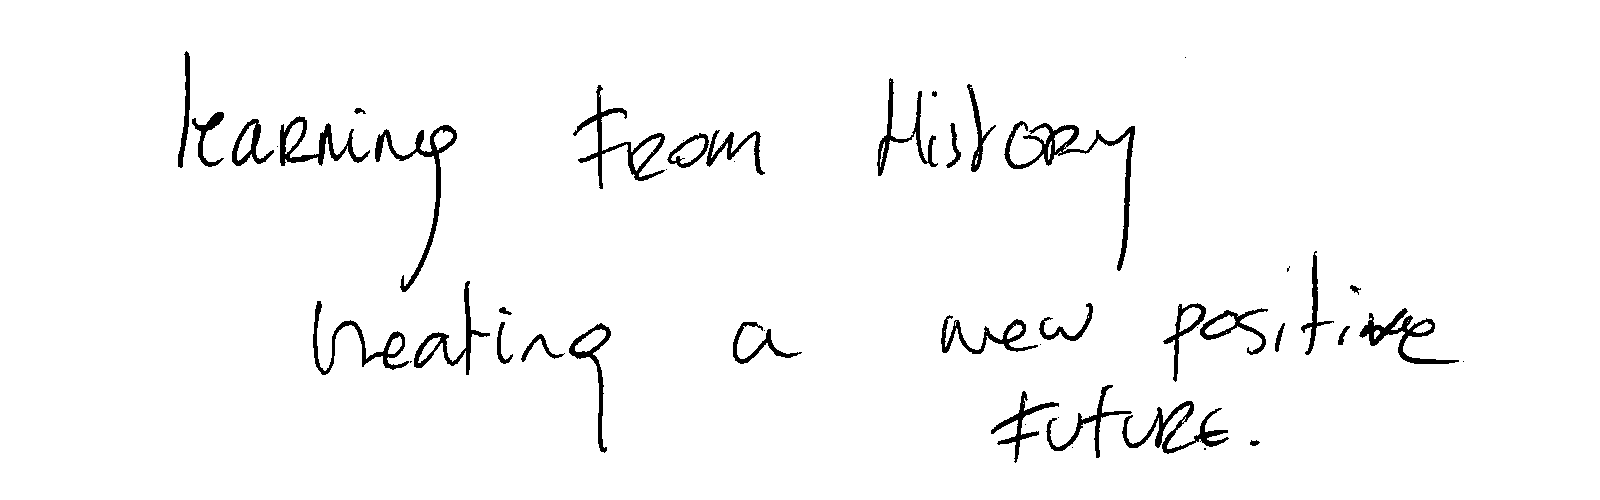 learning from History
creating a new positive
future.